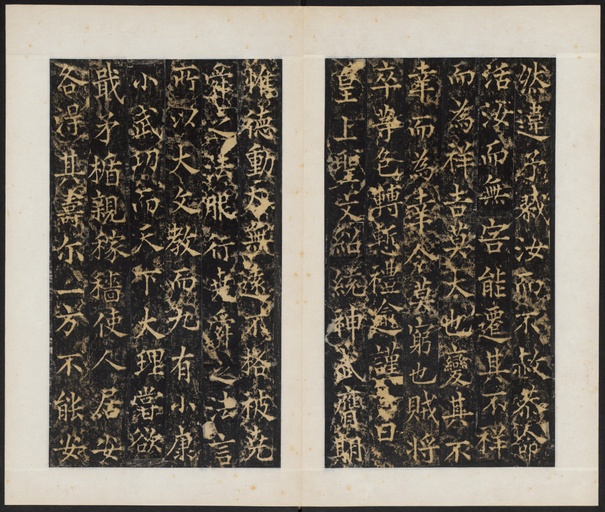 然違予戮汝而不赦恭命
活汝而無害能遷其不祥
而為祥吉莫大也變其不
幸而為幸令莫窮也賊將
卒等色轉慙禮愈謹 曰
皇上聖文紹統神武膺期
惟德動天無遠不格被堯
舜之法服行堯舜之法言
所以大文教而九有小康
小武功而天下大理嘗欲
戢矛楯親稼穡使人居安
各得其壽尓一方不能安